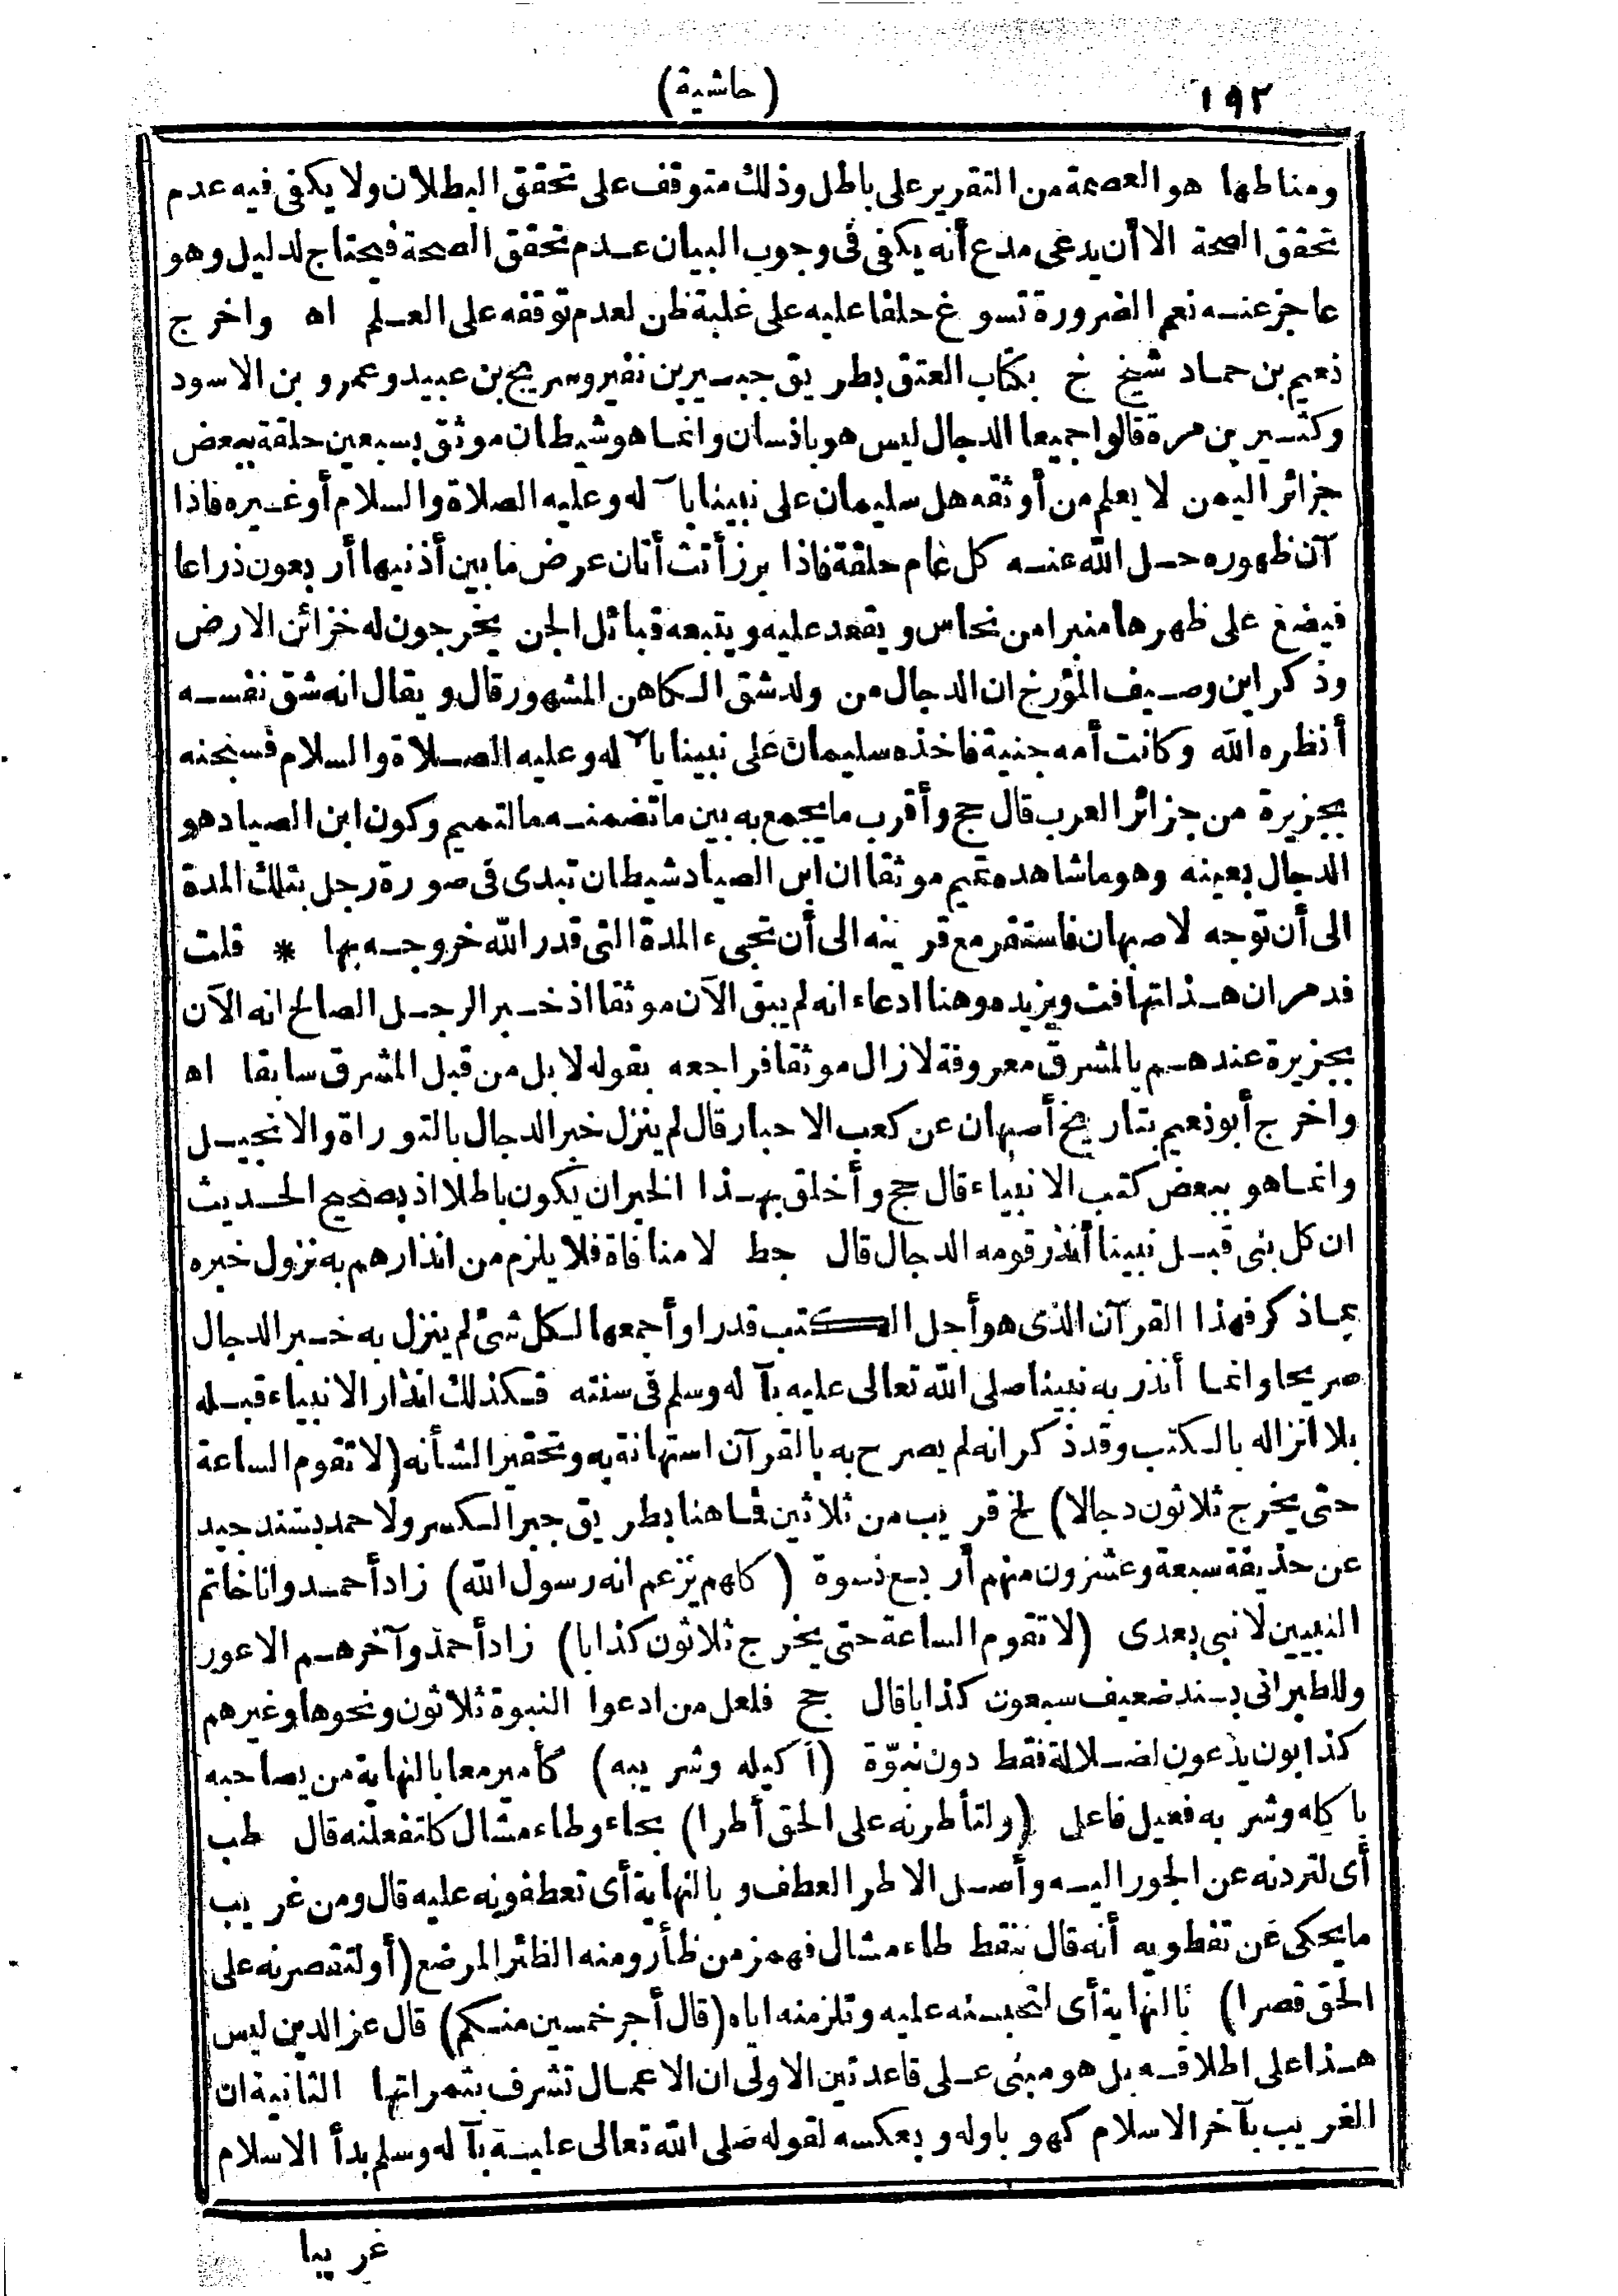 ١٩٢
(حاشية)
ومناطها هو العصمة من التقرير على باطل وذلك متوقف على تحقق البطلان ولا يكفى فيه عدم
تحقق الصحة الا أن يدعى مدع أنه يكفى فى وجوب البيان عدم تحقق الصحة فيحتاج لدليل وهو
عاجز عنه نعم الضرورة تسوغ حلفا عليه على غلبة ظن لعدم توقفه على العلم اه واخرج
نعيم بن حماد شيخ خ بكتاب العتق بطريق جبير بن نفير وسريج بن عبيد وعمرو بن الاسود
وكثير بن مرة قالوا جميعا الدجال ليس هو بانسان وانما هو شيطان موثق بسبعين حلقة ببعض
جزائر اليمن لا يعلم من أوثقه هل سليمان على نبينا بآله وعليه الصلاة والسلام أو غيره فاذا
آن ظهوره حل الله عنه كل عام حلقة فاذا برز أتت أتان عرض ما بين أذنيها أربعون ذراعا
فيضع على ظهرها منبرا من نحاس ويقعد عليه ويتبعه قبائل الجن يخرجون له خزائن الارض
وذكر ابن وصيف المؤرخ ان الدجال من ولد شق الكاهن المشهور قال ويقال انه شق نفسه
أنظره الله وكانت أمه جنية فاخذه سليمان على نبينا بآله وعليه الصلاة والسلام فسجنه
بجزيرة من جزائر العرب قال حج وأقرب ما يجمع به بين ما تضمنه مالتميم وكون ابن الصياد هو
الدجال بعينه وهو ما شاهده تميم موثقا ان ابن الصياد شيطان تبدى فى صورة رجل بتلك المدة
الى أن توجه لاصبهان فاستقر مع قرينه الى أن تجىء المدة التى قدر الله خروجه بها * قلت
قد مر ان هذا تهافت ويزيده وهنا ادعاء انه لم يبق الآن موثقا اذ خبر الرجل الصالح انه الآن
بجزيرة عندهم بالمشرق معروفة لازال موثقا فراجعه بقوله لا بل من قبل المشرق سابقا اه
واخرج أبو نعيم بتاريخ أصبهان عن كعب الاحبار قال لم ينزل خبر الدجال بالتوراة والانجيل
وانما هو ببعض كتب الانبياء قال حج وأخلق بهذا الخبر ان يكون باطلا اذ بصحيح الحديث
ان كل نبى قبل نبينا أنذر قومه الدجال قال جط لا منافاة فلا يلزم من انذارهم به نزول خبره
بما ذكر فهذا القرآن الذى هو أجل الكتب قدرا وأجمعها لكل شئ لم ينزل به خبر الدجال
صريحا وانما أنذر به نبينا صلى الله تعالى عليه بآله وسلم فى سنته فكذلك انذار الانبياء قبله
بلا انزاله بالكتب وقد ذكر انه لم يصرح به بالقرآن استهانة به وتحقيرا لشأنه (لا تقوم الساعة
حتى يخرج ثلاثون دجالا) لخ قريب من ثلاثين فما هنا بطريق جبر الكسر ولاحمد بسند جيد
عن حذيفة سبعة وعشرون منهم أربع نسوة (كلهم يزعم انه رسول الله) زاد أحمد وانا خاتم
النبيين لا نبى بعدى (لا تقوم الساعة حتى يخرج ثلاثون كذابا) زاد أحمد وآخرهم الاعور
وللطبرانى بسند ضعيف سبعون كذابا قال حج فلعل من ادعوا النبوة ثلاثون ونحوها وغيرهم
كذابون يدعون لضلالة فقط دون نبوّة (أكيله وشريبه) كأمير معا بالنهاية من يصاحبه
باكله وشربه فعيل فاعل (ولتأطرنه على الحق أطرا) بحاء وطاء مشال كاتفعلنه قال طب
أى لتردنه عن الجور اليه وأصل الاطر العطف وبالنهاية أى تعطفونه عليه قال ومن غريب
ما يحكى عن نفطويه أنه قال بنقط طاء مشال فهمز من ظأر ومنه الظئر المرضع (أو لتقصرنه على
الحق قصرا) بالنهاية أى لتحبسنه عليه وتلزمنه اياه (قال أجر خمسين منكم) قال عز الدين ليس
هذا على اطلاقه بل هو مبنى على قاعدتين الاولى ان الاعمال تشرف بثمراتها الثانية ان
الغريب بآخر الاسلام كهو باوله وبعكسه لقوله صلى الله تعالى عليه بآله وسلم بدأ الاسلام
غريبا